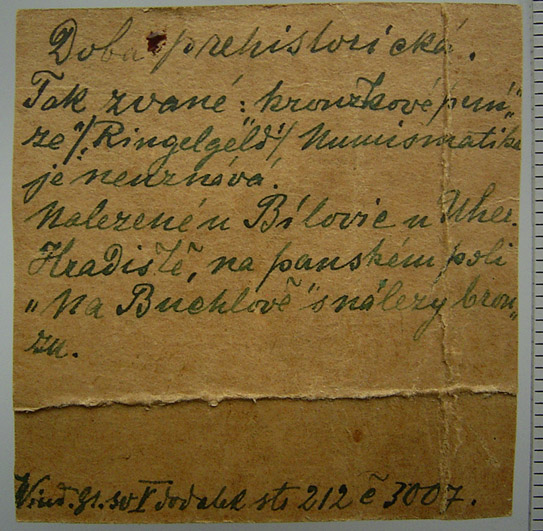 Doba prehistorická.
Tak zvané: kroužkové pení„
ze"/„Ringelgeld"/ Numismatika
je neuznává.
Nalezené u Bílovic u Uher.
Hradiště, na panském poli
„Na Buchlově" s nálezy bron„
zu.
sv V dodatek str 212 č 3007.